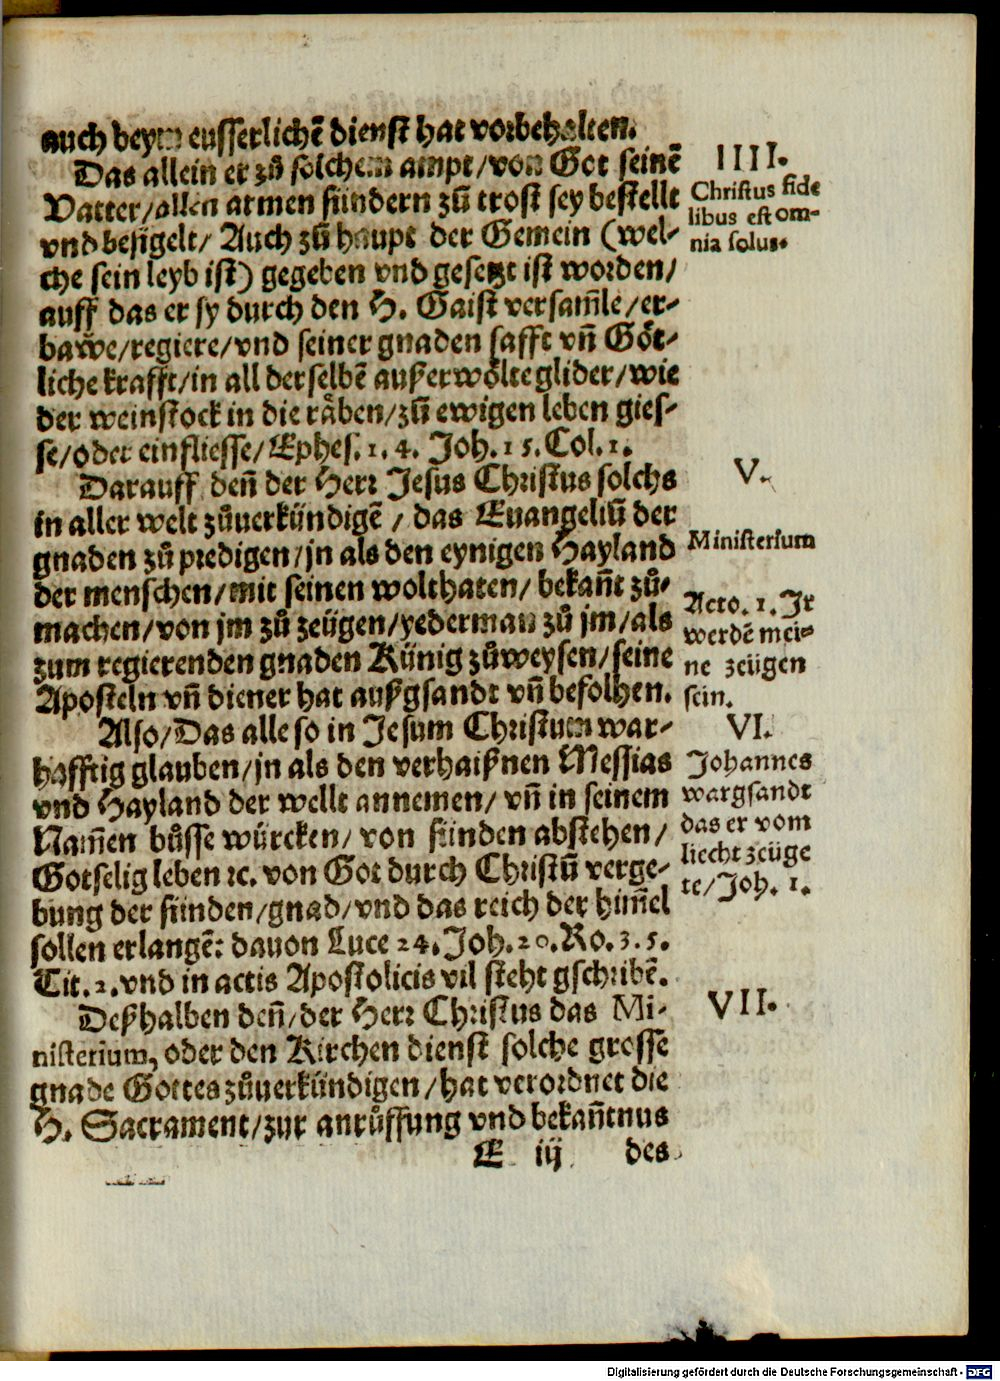 auch beym eusserlichē dienst hat vorbehalten.
Das allein er zů solchem ampt/von Got seinē
Vatter/allen armen sündern zů trost sey bestellt
vnd besigelt/ Auch zů haupt der Gemein (wel-
che sein leyb ist) gegeben vnd gesetzt ist worden/
auff das er sy durch den H. Gaist versam̄le/er-
bawe/regiere/vnd seiner gnaden safft vn̄ Göt-
liche krafft/in all derselbē außerwölte glider/wie
der weinstock in die räben/zů ewigen leben gies-
se/oder einfliesse/Ephes. 1. 4. Joh. 15. Col. 1.
Darauff den̄ der Herr Jesus Christus solchs
in aller welt zůuerkündigē / das Euangeliū der
gnaden zů predigen/jn als den eynigen Hayland
der menschen/mit seinen wolthaten/ bekan̄t zů-
machen/von jm zů zeügen/yederman zů jm/als
zum regierenden gnaden Künig zůweysen/seine
Aposteln vn̄ diener hat außgsandt vn̄ befolhen.
Also/Das alle so in Jesum Christum war-
hafftig glauben/jn als den verhaißnen Messias
vnd Hayland der wellt annemen/ vn̄ in seinem
Nam̄en bůsse würcken/ von sünden abstehen/
Gotselig leben ꝛc. von Got durch Christū verge-
bung der sünden/gnad/vnd das reich der him̄el
sollen erlangē: dauon Luce 24. Joh. 20. Ro. 3. 5.
Tit. 2. vnd in actis Apostolicis vil steht gschribē.
Deßhalben den̄/der Herr Christus das Mi-
nisterium, oder den Kirchen dienst solche grosse
gnade Gottes zůuerkündigen/hat verordnet die
H. Sacrament/zur anrůffung vnd bekan̄tnus
E iij des
IIII.
Christus fide
libus est om-
nia solus.
V.
Ministerium
Acto. 1. Jr
werdē mei-
ne zeügen
sein.
VI.
Johannes
war gsandt
das er vom
liecht zeüge
te/Joh. 1.
VII.
Digitalisierung gefördert durch die Deutsche Forschungsgemeinschaft - DFG